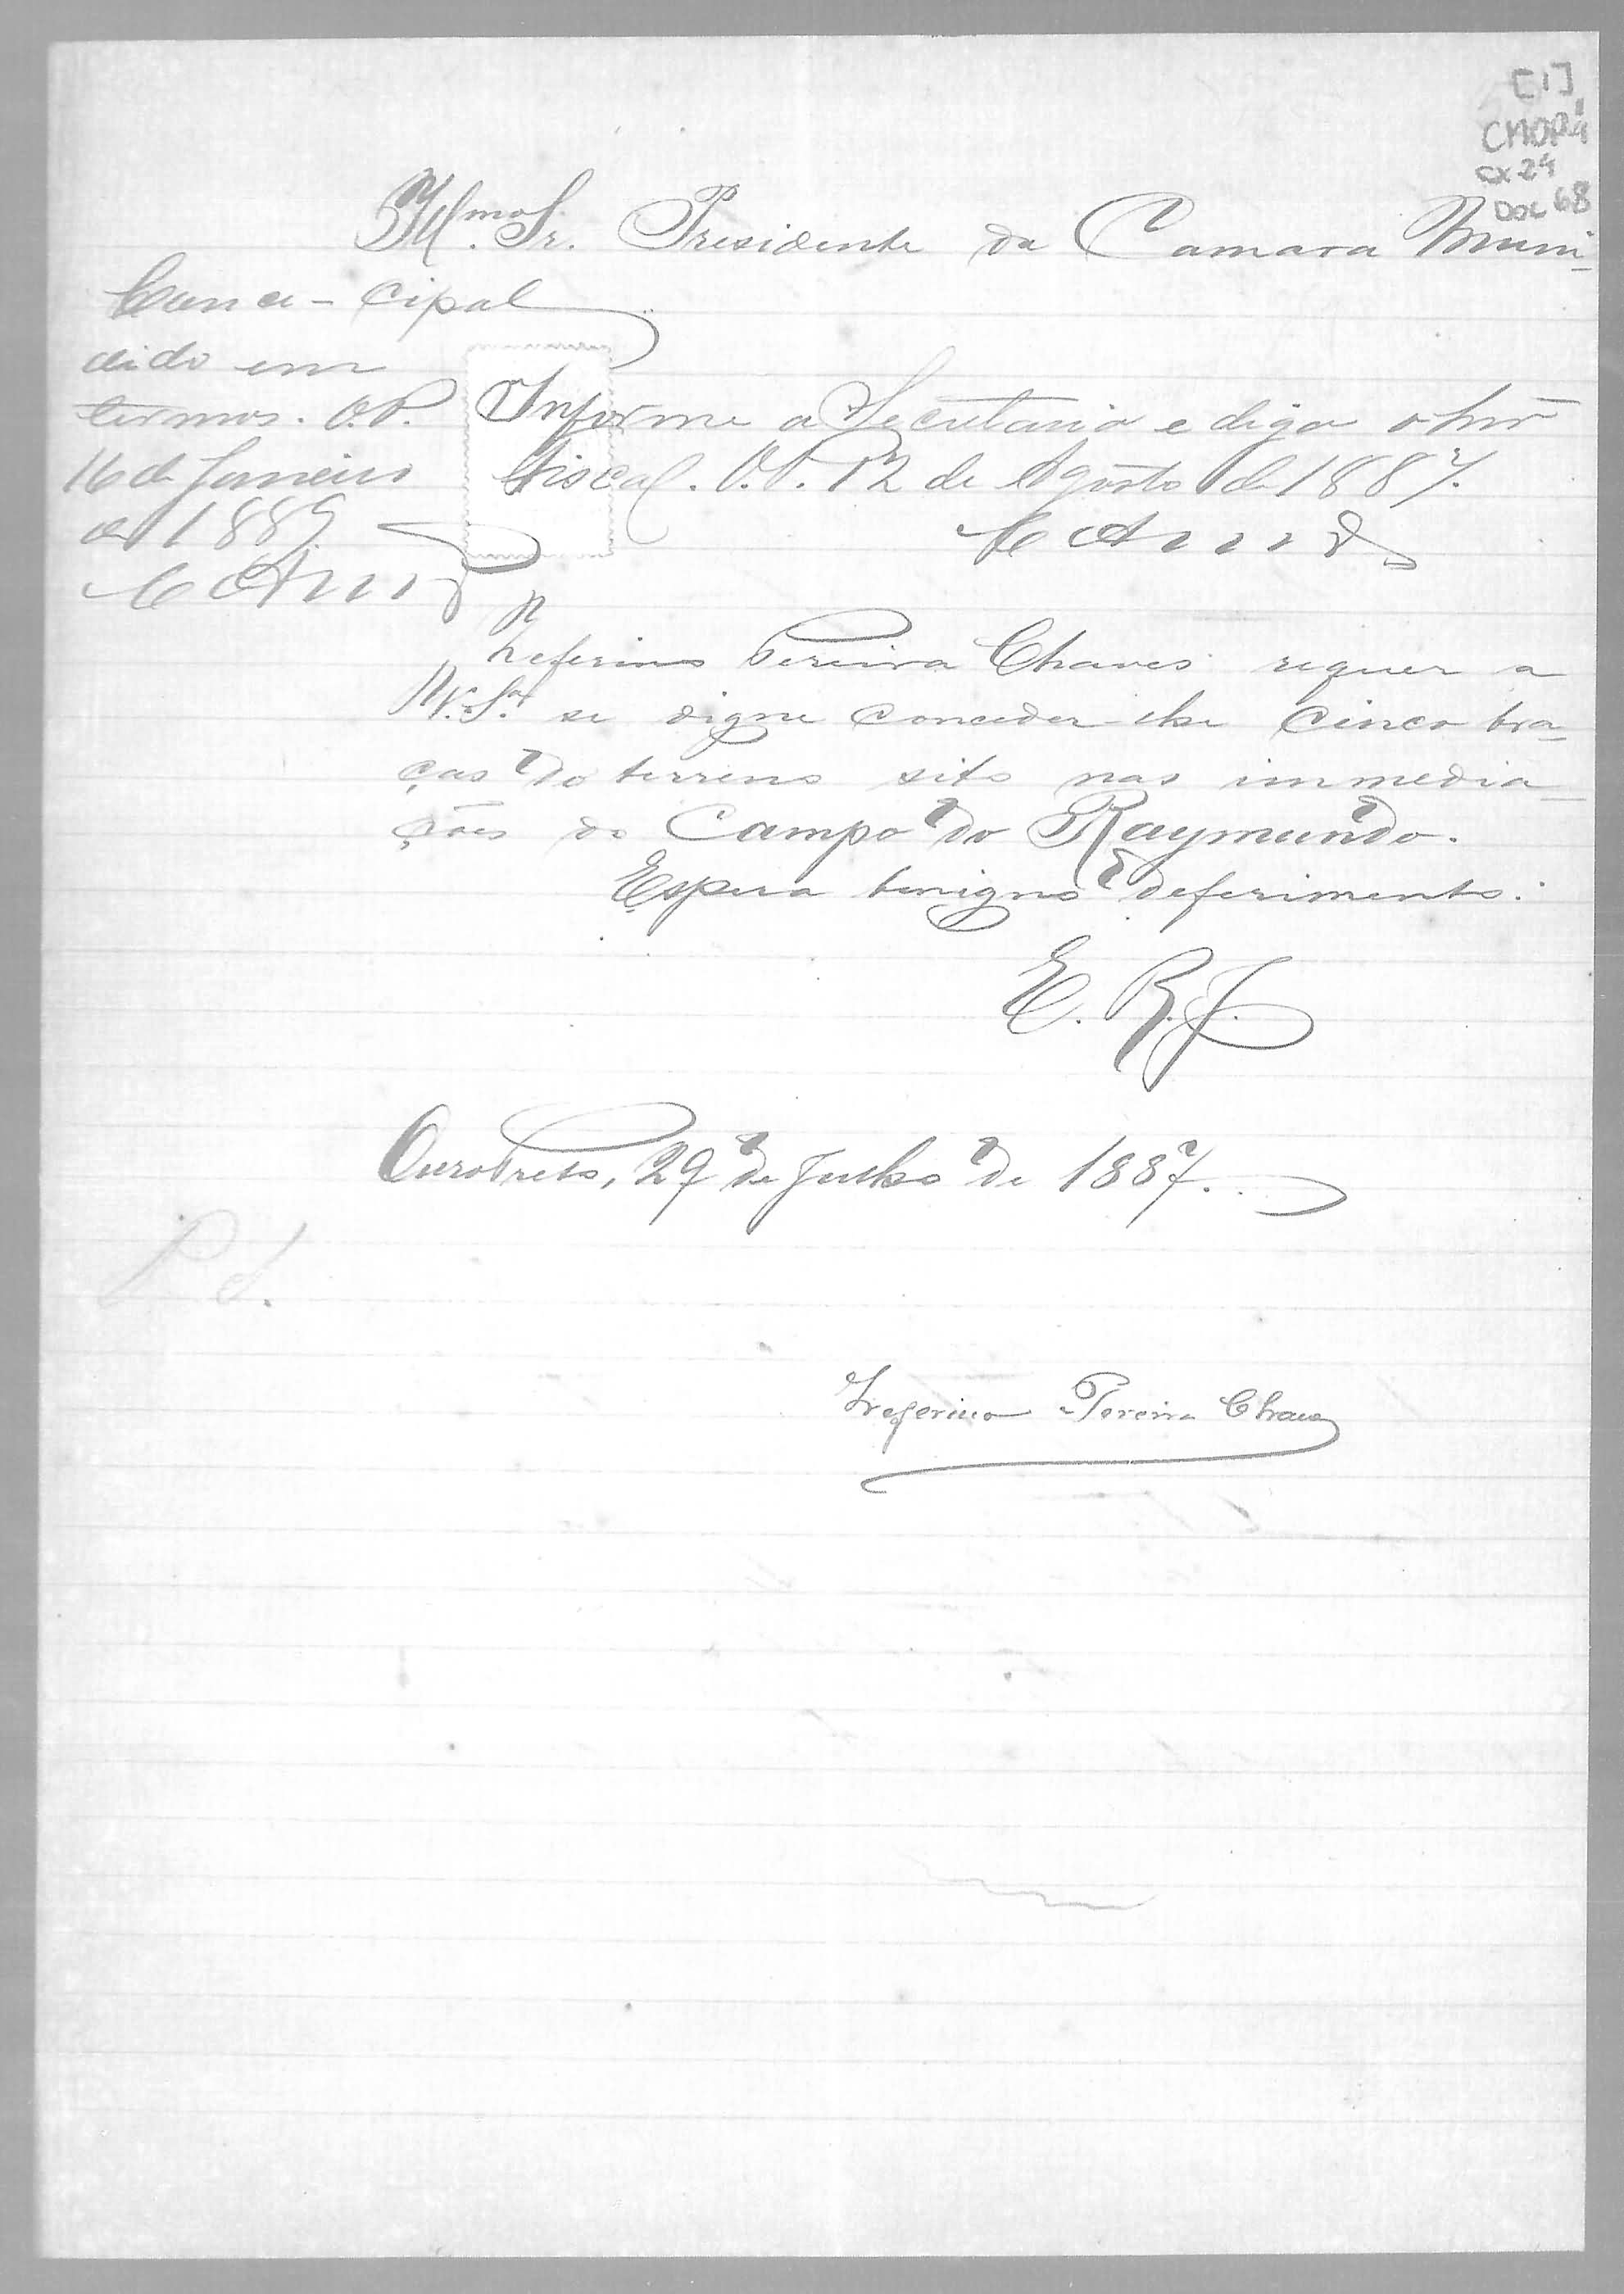 [1]
CMOP
cx 24
DOC 68
Illmo. Sr. Presidente da Camara Muni-
cipal
Conce-
dido em
termos. O.P.
16 de Janeiro
de 1889
Informe a Secretaria e diga o Snr
Fiscal. O.P. 12 de Agosto de 1887.
Zeferino Pereira Chaves requer a
V.Sa. se digne conceder-lhe cinco bra-
ças de terreno sito nas immedia-
ções do Campo do Raymundo.
Espera benigno deferimento.
E. R. J.
Ouro Preto, 29 de Julho de 1887.
P d.
Zeferino Pereira Chaves